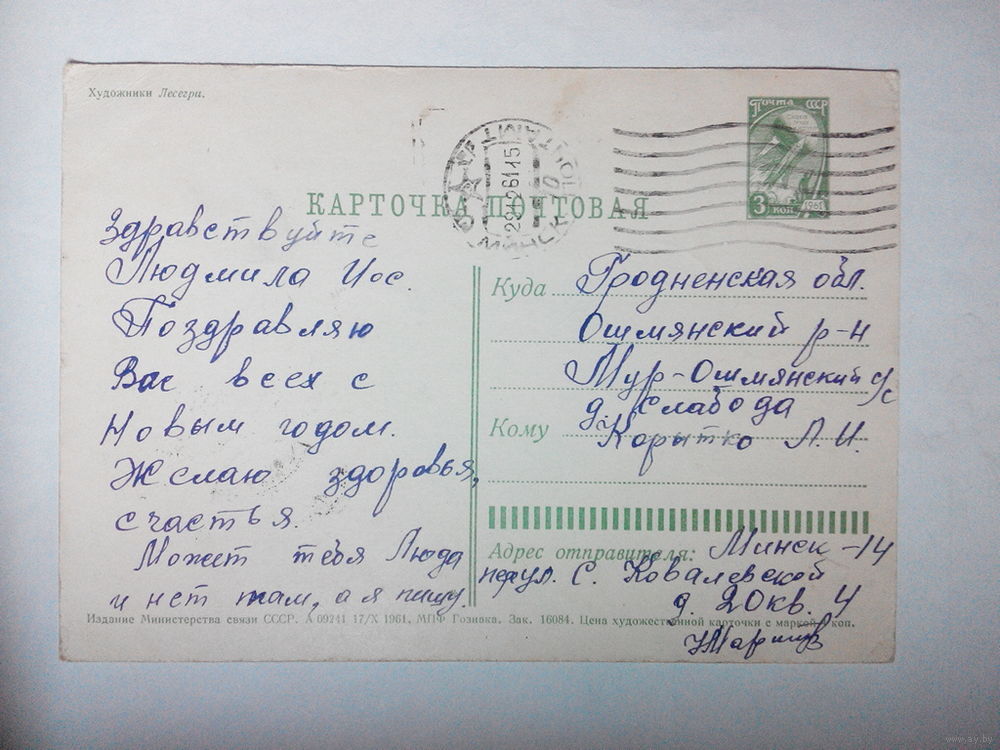 Художники Лесегри.
Почта СССР
3 коп.
1961
МИНСК ПОЧТАМТ
281261 15
КАРТОЧКА ПОЧТОВАЯ
Здравствуйте
Людмила Иос.
Поздравляю
Вас всех с
Новым годом.
Желаю здоровья,
счастья.
Может тебя Люда
и нет там, а я пишу.
Куда Гродненская обл.
Ошмянский р-н
Мур-Ошмянский с/с
д. Слабода
Кому Корытко Л. И.
Адрес отправителя: Минск-14
пер ул. С. Ковалевской
д. 20 кв. 4
Издание Министерства связи СССР. А 09241 17/X 1961. МПФ Гознака. Зак. 16084. Цена художественной карточки с маркой коп.
www.ay.by